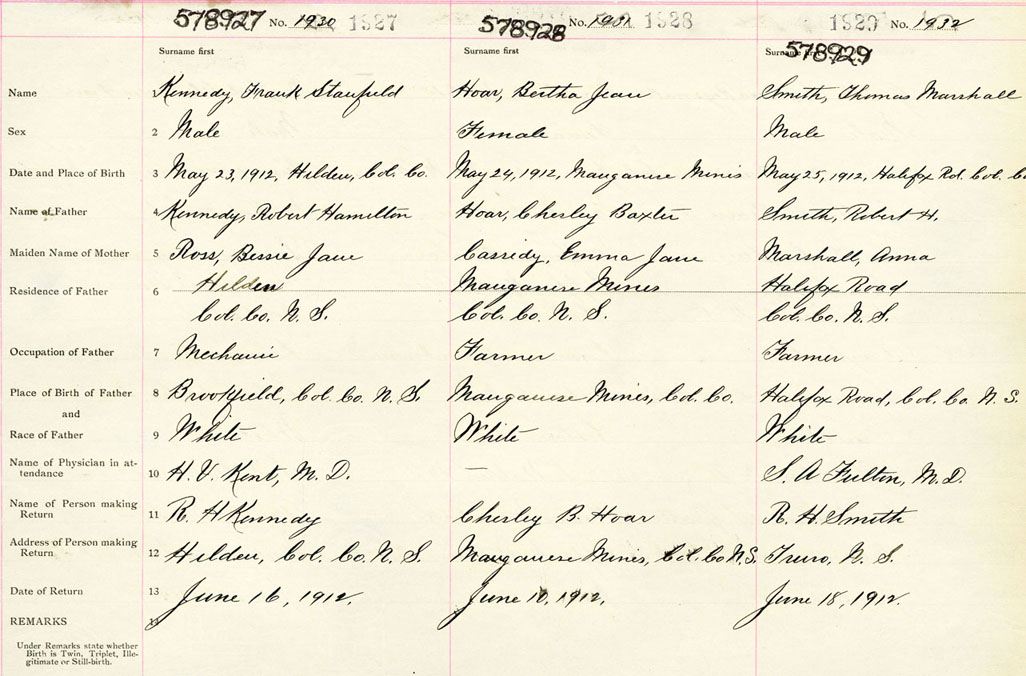 578927 No. 1930 1927 578928 No. 1931 1928 1929 No. 1932
Surname first Surname first Surname first 578929
Name Kennedy, Frank Stanfield Hoar, Bertha Jean Smith, Thomas Marshall
Sex 2 Male Female Male
Date and Place of Birth 3 May 23, 1912, Hilden, Col. Co. May 24, 1912, Manganese Mines May 25, 1912, Halifax Rd. Col. Co
Name of Father 4 Kennedy, Robert Hamilton Hoar, Cherley Baxter Smith, Robert H.
Maiden Name of Mother 5 Ross, Bessie Jane Cassidy, Emma Jane Marshall, Anna
Residence of Father 6 Hilden Manganese Mines Halifax Road
Col. Co. N. S. Col. Co. N. S. Col. Co. N. S.
Occupation of Father 7 Mechanic Farmer Farmer
Place of Birth of Father 8 Brookfield, Col. Co. N. S. Manganese Mines, Col. Co. Halifax Road, Col. Co. N. S.
and
Race of Father 9 White White White
Name of Physician in at-
tendance 10 H. V. Kent, M. D. — S. A Fulton, M. D.
Name of Person making
Return 11 R. H Kennedy Cherley B. Hoar R. H. Smith
Address of Person making
Return 12 Hilden, Col. Co. N. S. Manganese Mines, Col. Co N. S. Truro, N. S.
Date of Return 13 June 16, 1912. June 10, 1912. June 18, 1912.
REMARKS 14
Under Remarks state whether
Birth is Twin, Triplet, Ille-
gitimate or Still-birth.